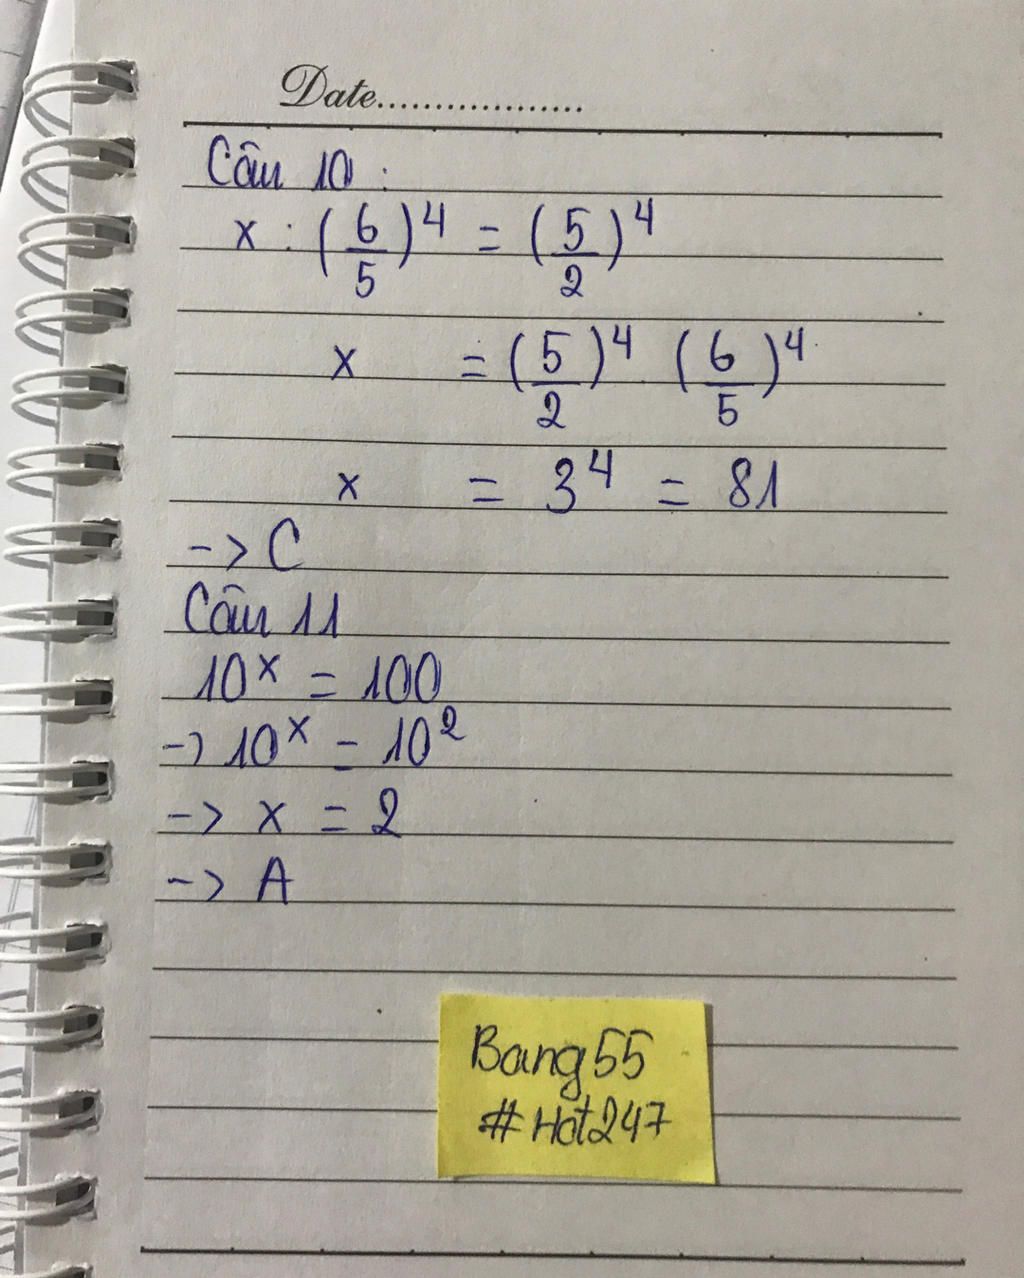 Date..................
Câu 10 :
x : (6/5)^4 = (5/2)^4
x = (5/2)^4 (6/5)^4
x = 3^4 = 81
-> C
Câu 11
10^x = 100
-> 10^x = 10^2
-> x = 2
-> A
Bang55
#Hot247